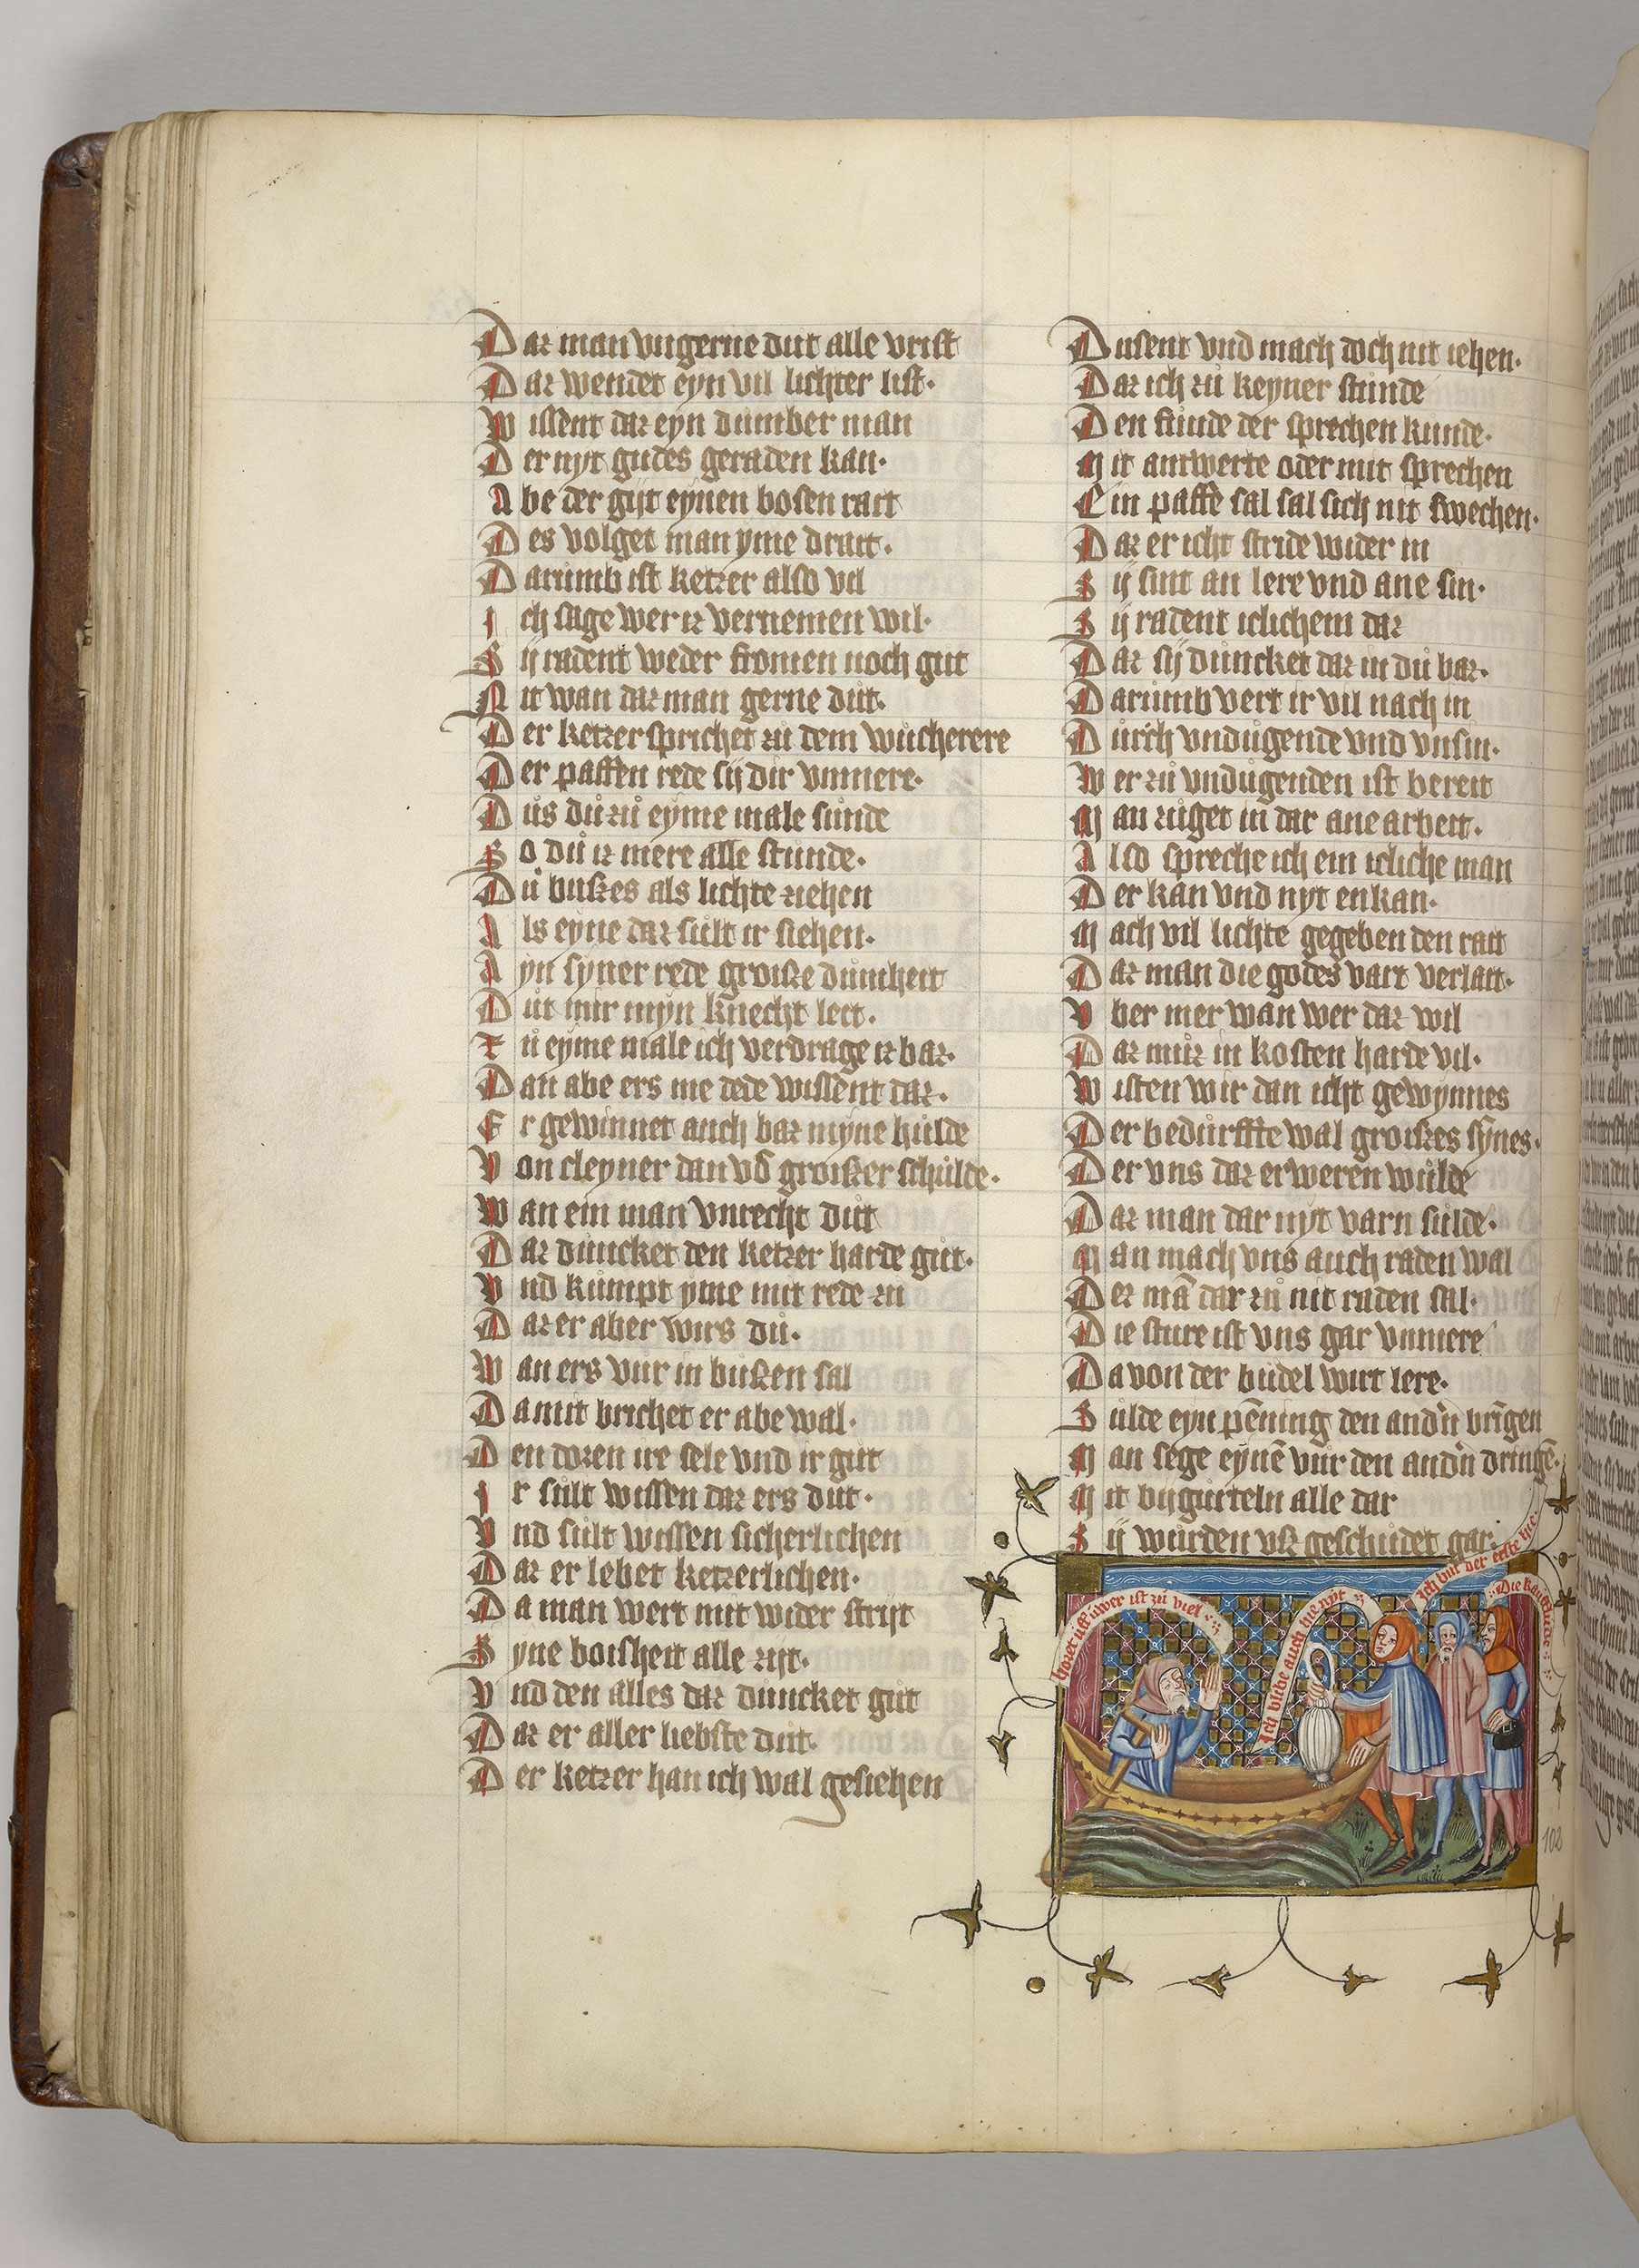 Daz man vngerne dut alle vrist
Daz wendet eyn vil lichter list.
Wissent daz eyn dumber man
Der nyt gudes geraden kan.
Abe der gijt eynen bosen ratt
Des volget man yme dratt.
Darumb ist ketzer also vil
Ich sage wer iz vernemen wil.
Sij radent weder fromen noch gut
Nit wan daz man gerne důt.
Der ketzer sprichet zů dem wůcherere
Der paffen rede sij dir vnmere.
Důs dů zů eyme male sunde
So dů iz mere alle stunde.
Du bußes als lichte ziehen
Als eyne daz sůlt ir siehen.
Ayn syner rede groiße dumheit
Důt mir myn knecht leit.
Zů eyme male ich verdrage iz baz.
Dan abe ers me dede wissent daz.
Er gewinnet auch baz myne hulde
Von cleyner dan vō groißer schulde.
Wan ein man vnrecht dut
Daz duncket den ketzer harde gůt.
Vnd kumpt yme mit rede zu
Daz er aber wirs dů.
Wan ers vur in bußen sal
Damit brichet er abe wal.
Den doren ire sele vnd ir gut
Ir sůlt wissen daz ers dut.
Vnd sůlt wissen sicherlichen
Daz er lebet ketzerlichen.
Da man wert mit wider strijt
Syne boisheit alle zijt.
Vnd den alles daz duncket gůt
Daz er aller liebste dut.
Der ketzer han ich wal gesiehen
Dusent vnd mach doch nit iehen.
Daz ich zů keyner stunde
Den funde der sprechen kunde.
Mit antwerte oder mit sprechen
Ein paffe sal sal sich nit swechen.
Daz er icht stride wider in
Sij sint an lere vnd ane sin.
Sij radent iclichem daz
Daz sij duncket daz in dů baz.
Darumb vert ir vil nach in
Durch vndůgende vnd vnsin.
Wer zů vndůgenden ist bereit
Man zuget in dar ane arbeit.
Also spreche ich ein icliche man
Der kan vnd nyt enkan.
Mach vil lichte gegeben den ratt
Daz man die godes vart verlatt.
Vber mer wan wer dar wil
Daz můz in kosten harde vil.
Wisten wir dan icht gewynnes
Der bedurffte wal groißes synes.
Der vns daz erweren wulde
Daz man dar nyt varn sulde.
Man mach vns auch raden wal
Der mā dar zů nit raden sal.
Die sture ist vns gar vnmere
Da von der budel wirt lere.
Sulde eyn pēning den andn̄ brīgen
Man sege eynē vur den andn̄ dringē.
Mit bijgurteln alle dar
Sij wurden vß geschudet gar.
horet uff uwer ist zů viel
Ich blibe auch hie nyt
Ich bin der erste hie
Die kauflude
102